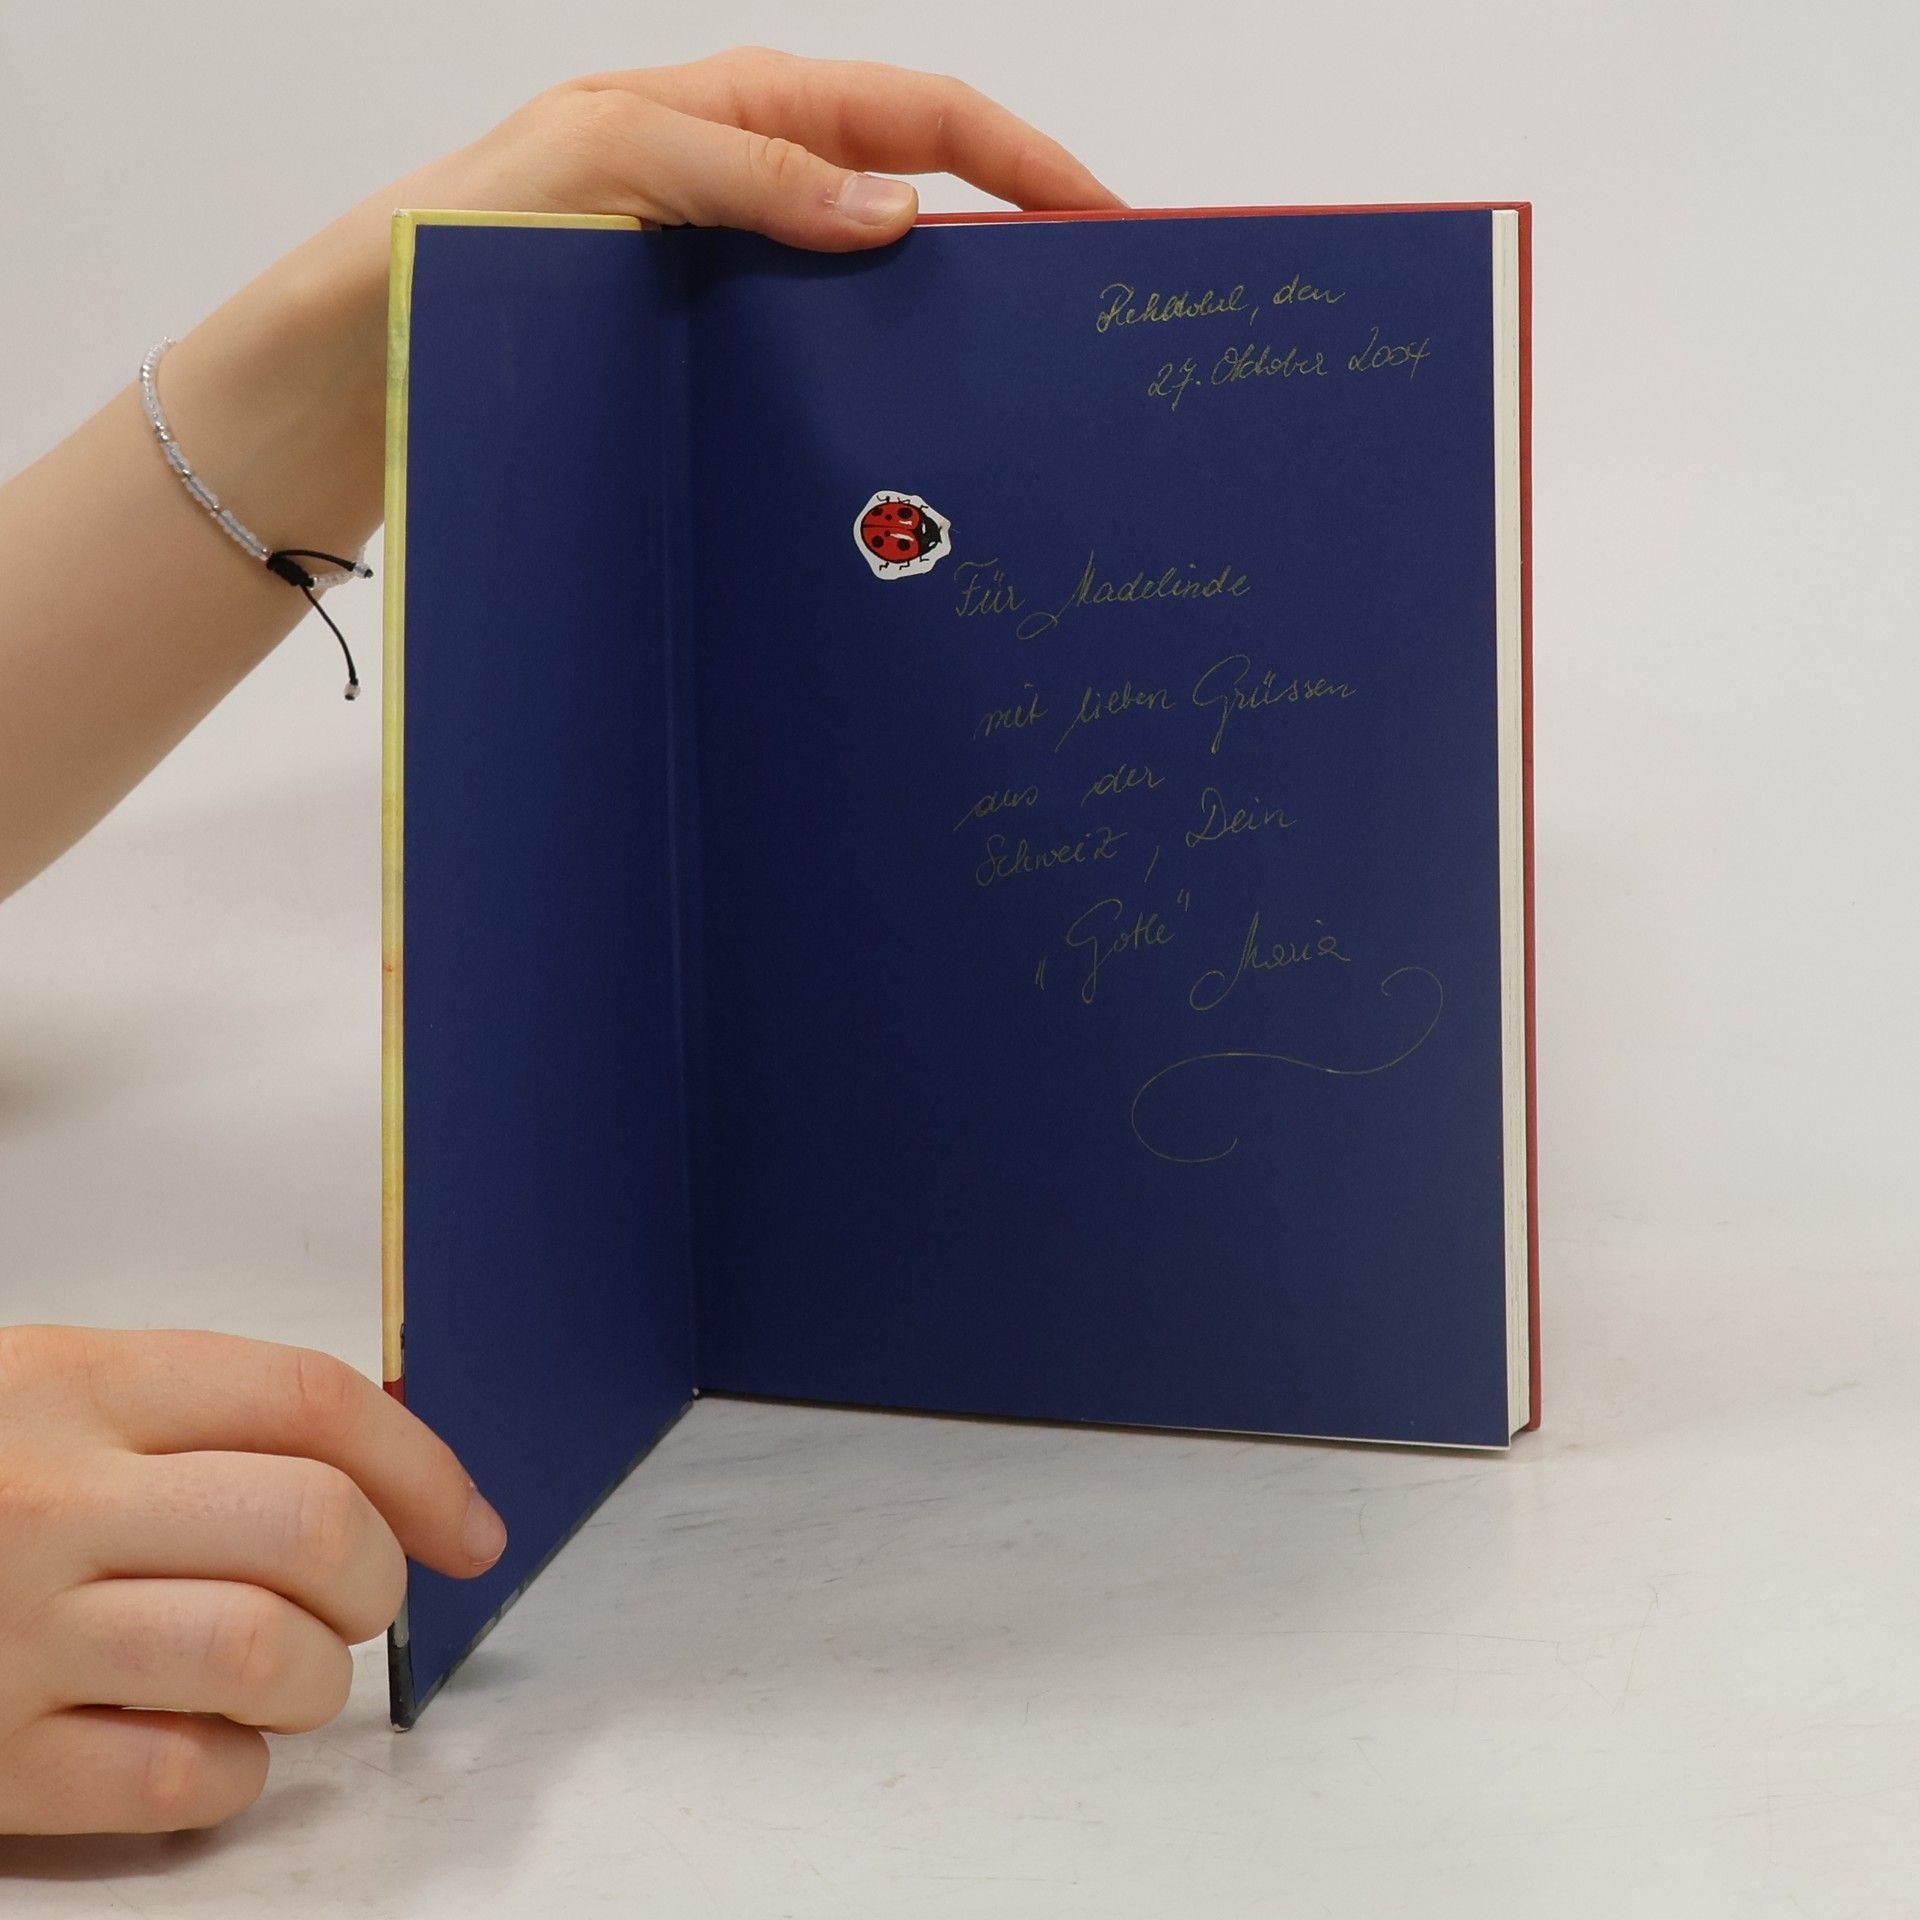 Rehetobel, den
27. Oktober 2004
Für Madelinde
mit lieben Grüssen
aus der
Schweiz, Dein
"Gotte" Maria